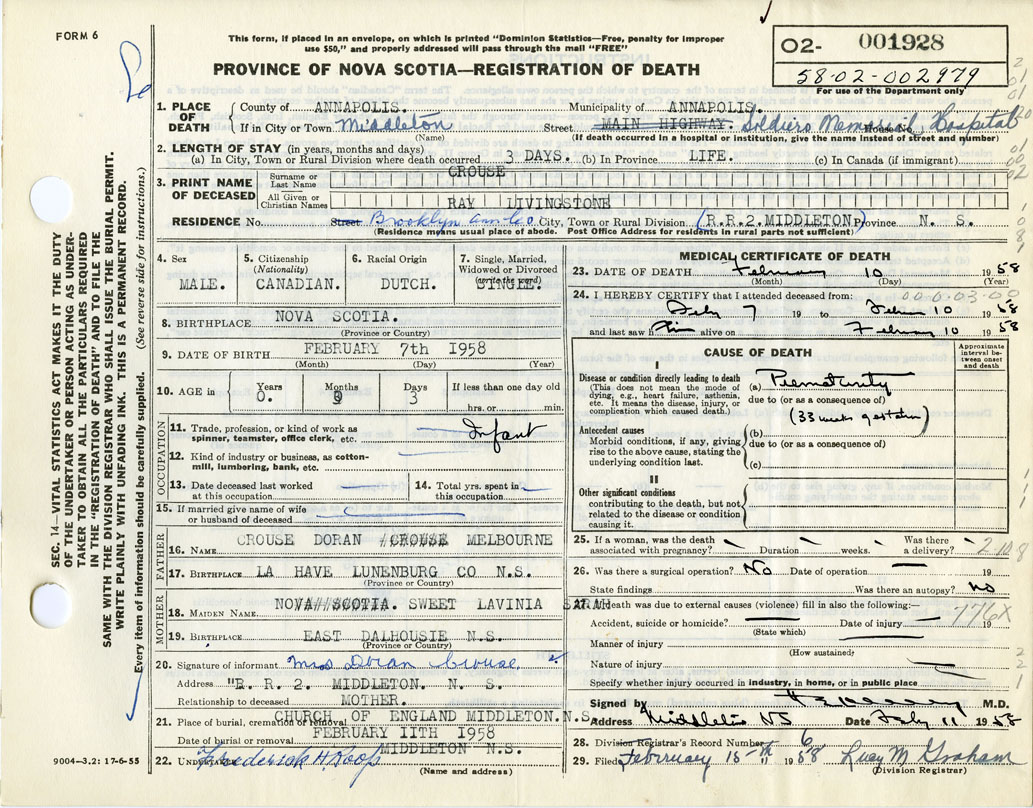 FORM 6
This form, if placed in an envelope, on which is printed "Dominion Statistics—Free, penalty for improper
use $50," and properly addressed will pass through the mail "FREE"
PROVINCE OF NOVA SCOTIA—REGISTRATION OF DEATH
O2- 001928
58-02-002979
For use of the Department only
1. PLACE OF DEATH
County of ANNAPOLIS. Municipality of ANNAPOLIS.
If in City or Town Middleton Street MAIN HIGHWAY. Soldiers Memorial Hospital
(Name) (If death occurred in a hospital or institution, give the name instead of street and number)
2. LENGTH OF STAY (in years, months and days)
(a) In City, Town or Rural Division where death occurred 3 DAYS. (b) In Province LIFE. (c) In Canada (if immigrant)
3. PRINT NAME OF DECEASED
Surname or Last Name CROUSE
All Given or Christian Names RAY LIVINGSTONE
RESIDENCE No. Street Brooklyn Ann Co City, Town or Rural Division (R.R.2.MIDDLETON) Province N. S.
(Residence means usual place of abode. Post Office Address for residents in rural parts not sufficient)
4. Sex MALE.
5. Citizenship (Nationality) CANADIAN.
6. Racial Origin DUTCH.
7. Single, Married, Widowed or Divorced (write the word) SINGLE.
8. BIRTHPLACE NOVA SCOTIA.
(Province or Country)
9. DATE OF BIRTH FEBRUARY 7th 1958
(Month) (Day) (Year)
10. AGE in Years 0. Months 0 Days 3 If less than one day old hrs. or min.
OCCUPATION
11. Trade, profession, or kind of work as spinner, teamster, office clerk, etc. Infant
12. Kind of industry or business, as cotton-mill, lumbering, bank, etc.
13. Date deceased last worked at this occupation
14. Total yrs. spent in this occupation
15. If married give name of wife or husband of deceased
FATHER
16. Name CROUSE DORAN CROUSE MELBOURNE
17. Birthplace LA HAVE LUNENBURG CO N.S.
(Province or Country)
MOTHER
18. Maiden Name NOVA SCOTIA. SWEET LAVINIA SARAH
19. Birthplace EAST DALHOUSIE N.S.
(Province or Country)
20. Signature of informant Mrs Doran Crouse
Address R. R. 2. MIDDLETON. N. S.
Relationship to deceased MOTHER.
21. Place of burial, cremation or removal CHURCH OF ENGLAND MIDDLETON.N.S.
Date of burial or removal FEBRUARY 11TH 1958
MIDDLETON N.S.
22. Undertaker Frederick H. Roop
(Name and address)
9004—3.2: 17-6-55
MEDICAL CERTIFICATE OF DEATH
23. DATE OF DEATH February 10 1958
(Month) (Day) (Year)
24. I HEREBY CERTIFY that I attended deceased from:
000.03-00
Feby 7 19 to 10 1958
and last saw h im alive on February 10 1958
CAUSE OF DEATH
Approximate interval between onset and death
I
Disease or condition directly leading to death
(This does not mean the mode of dying, e.g., heart failure, asthenia, etc. It means the disease, injury, or complication which caused death.)
(a) Prematurity
due to (or as a consequence of)
(33 weeks gestation)
Antecedent causes
Morbid conditions, if any, giving rise to the above cause, stating the underlying condition last.
(b)
due to (or as a consequence of)
(c)
II
Other significant conditions
contributing to the death, but not related to the disease or condition causing it.
25. If a woman, was the death associated with pregnancy? Duration weeks. Was there a delivery?
26. Was there a surgical operation? No Date of operation 19
State findings Was there an autopsy? no
27. If death was due to external causes (violence) fill in also the following:—
776X
Accident, suicide or homicide? Date of injury 19
(State which)
Manner of injury
(How sustained)
Nature of injury
Specify whether injury occurred in industry, in home, or in public place
Signed by M.D.
Address Middleton NS Date Feby 11 1958
28. Division Registrar's Record Number 6
29. Filed February 15th 1958 Lucy M Graham
(Division Registrar)
SEC. 14—VITAL STATISTICS ACT MAKES IT THE DUTY
OF THE UNDERTAKER OR PERSON ACTING AS UNDER-
TAKER TO OBTAIN ALL THE PARTICULARS REQUIRED
IN THE "REGISTRATION OF DEATH" AND TO FILE THE
SAME WITH THE DIVISION REGISTRAR WHO SHALL ISSUE THE BURIAL PERMIT.
WRITE PLAINLY WITH UNFADING INK. THIS IS A PERMANENT RECORD.
Every item of information should be carefully supplied. (See reverse side for instructions.)